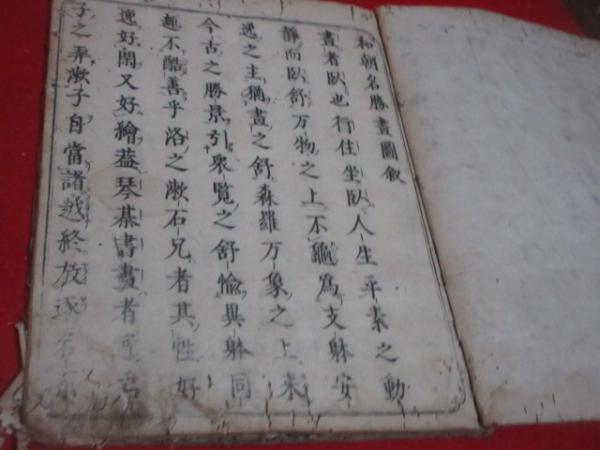 和朝名勝畫圖叙
畫者臥也行住坐臥人生平素之動
靜而臥舒万物之上不龜爲支躰安
逸之主猶畫之舒森羅万象之上来
今古之勝景引衆覧之舒愉異躰同
趣不酷善乎洛之漱石兄者其性好
逸好閑又好繪葢琴棊書畫者
子之弄漱子自當諸越終放逐